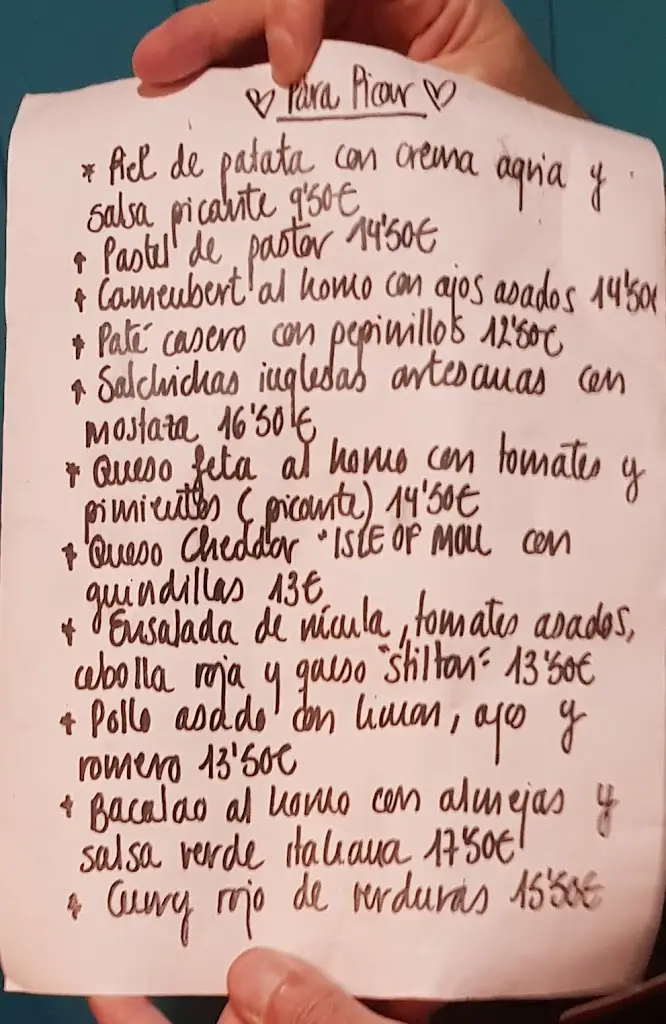 ♡ Para Picar ♡
* Piel de patata con crema agria y
salsa picante 9'50€
* Pastel de pastor 14'50€
* Camembert al horno con ajos asados 14'50€
* Paté casero con pepinillos 12'50€
* Salchichas inglesas artesanas con
mostaza 16'50€
* Queso feta al horno con tomates y
pimientos (picante) 14'50€
* Queso Cheddar "ISLE OF MULL con
guindillas 13€
* Ensalada de rúcula, tomates asados,
cebolla roja y queso "stilton" 13'50€
* Pollo asado con limon, ajo y
romero 13'50€
* Bacalao al horno con almejas y
salsa verde italiana 17'50€
* Curry rojo de verduras 15'50€